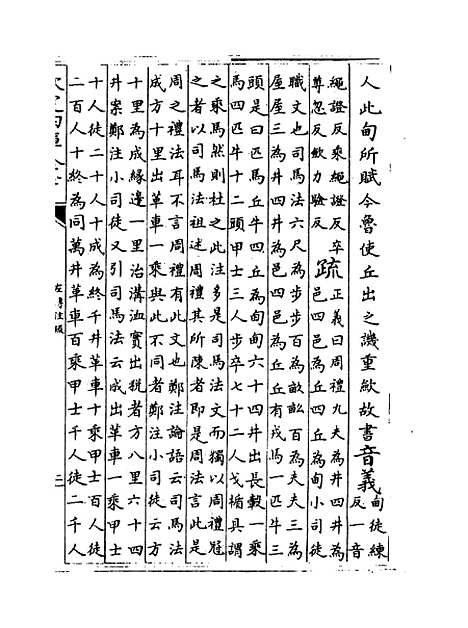 人此甸所賦今魯使丘出之譏重斂故書音義甸徒練
反一音
繩證反乘繩證反卒
尊忽反斂力驗反疏正義曰周禮九夫為井四井為
邑四邑為丘四丘為甸小司徒
職文也司馬法六尺為步步百為畝畝百為夫夫三為
屋屋三為井四井為邑四邑為丘丘有戎馬一匹牛三
頭是曰匹馬丘牛四丘為甸甸六十四井出長轂一乘
馬四匹牛十二頭甲士三人步卒七十二人戈楯具謂
之乘馬然則杜之此注多是司馬法文而獨以周禮冠
之者以司馬法祖述周禮其所陳者即是周法言此是
周之禮法耳不言周禮有此文也鄭注論語云司馬法
成方十里出革車一乘與此不同者鄭注小司徒云方
十里為成緣邊一里治溝洫實出稅者方八里六十四
井案鄭注小司徒又引司馬法云成出革車一乘甲士
十人徒二十人十成為終千井革車十乘甲士百人徒
二百人十終為同萬井革車百乘甲士千人徒二千人
左傳注疏
二